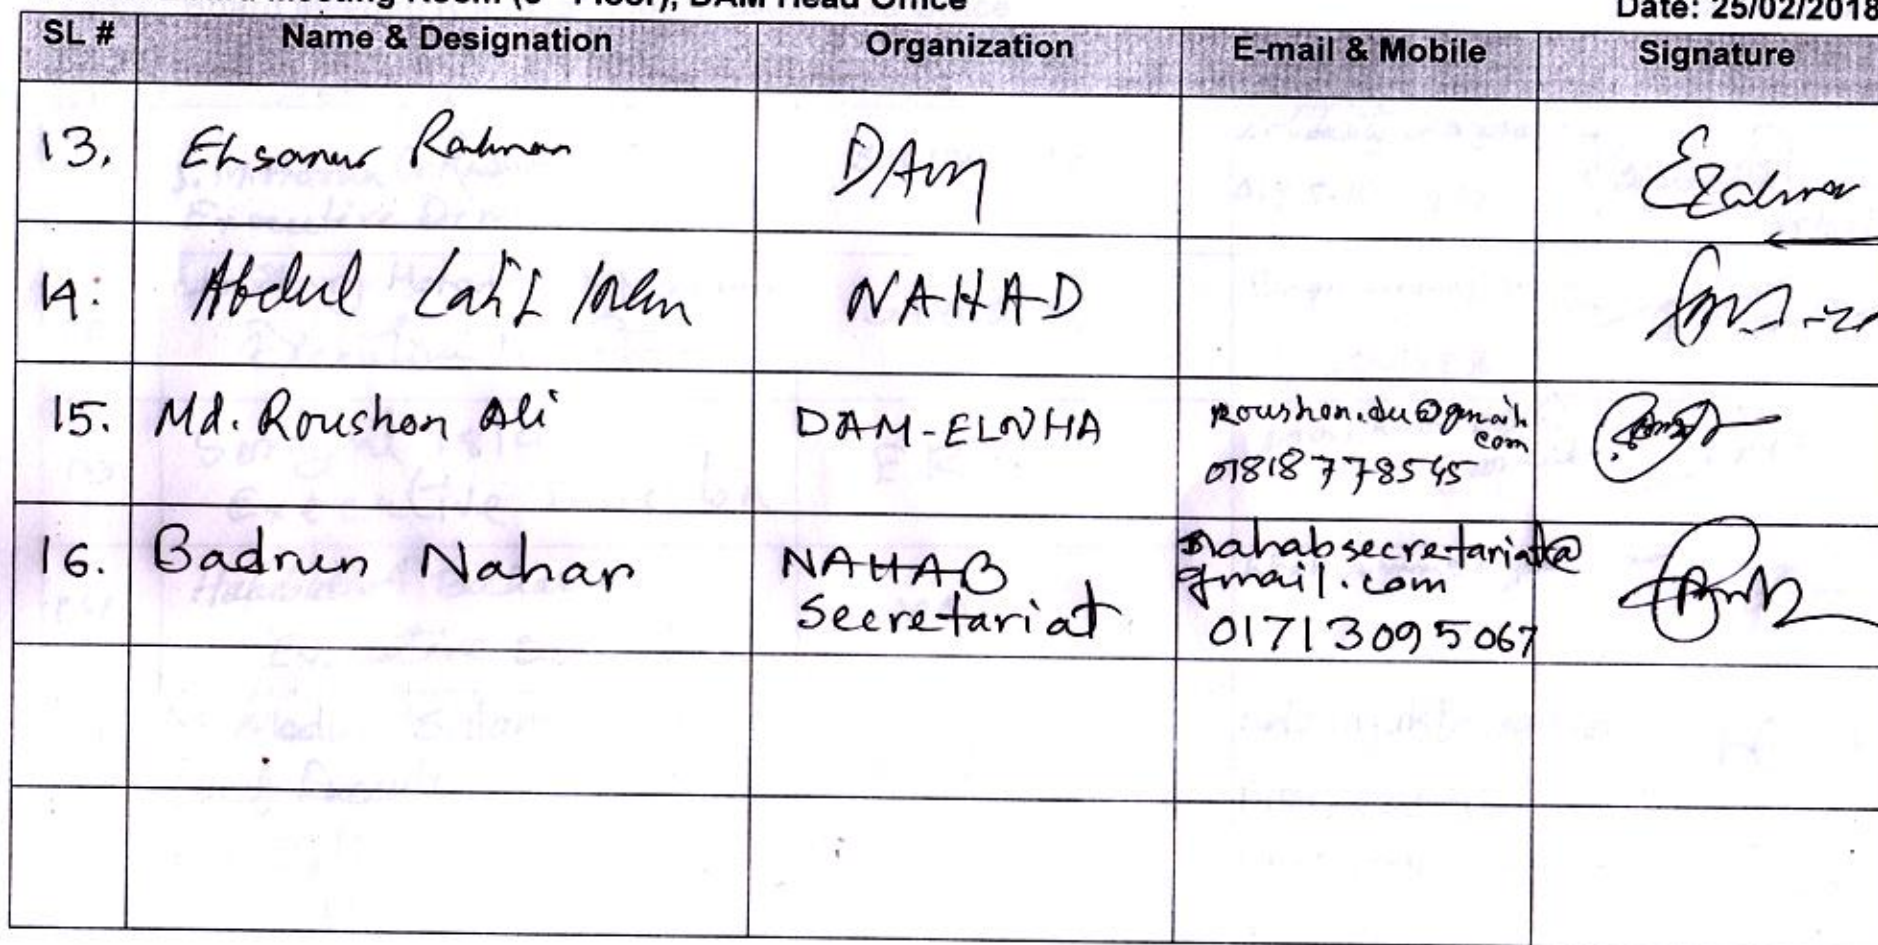 Meeting Room (5th Floor), DAM Head Office
Date: 25/02/2018
SL # Name & Designation Organization E-mail & Mobile Signature
13. Ehsanur Rahman DAM
14. Abdul Latif Khan NAHAD
15. Md. Roushon Ali DAM-ELNHA roushon.du@gmail.com
01818778545
16. Badrun Nahar NAHAB nahabsecretariat@
Secretariat gmail.com
01713095067